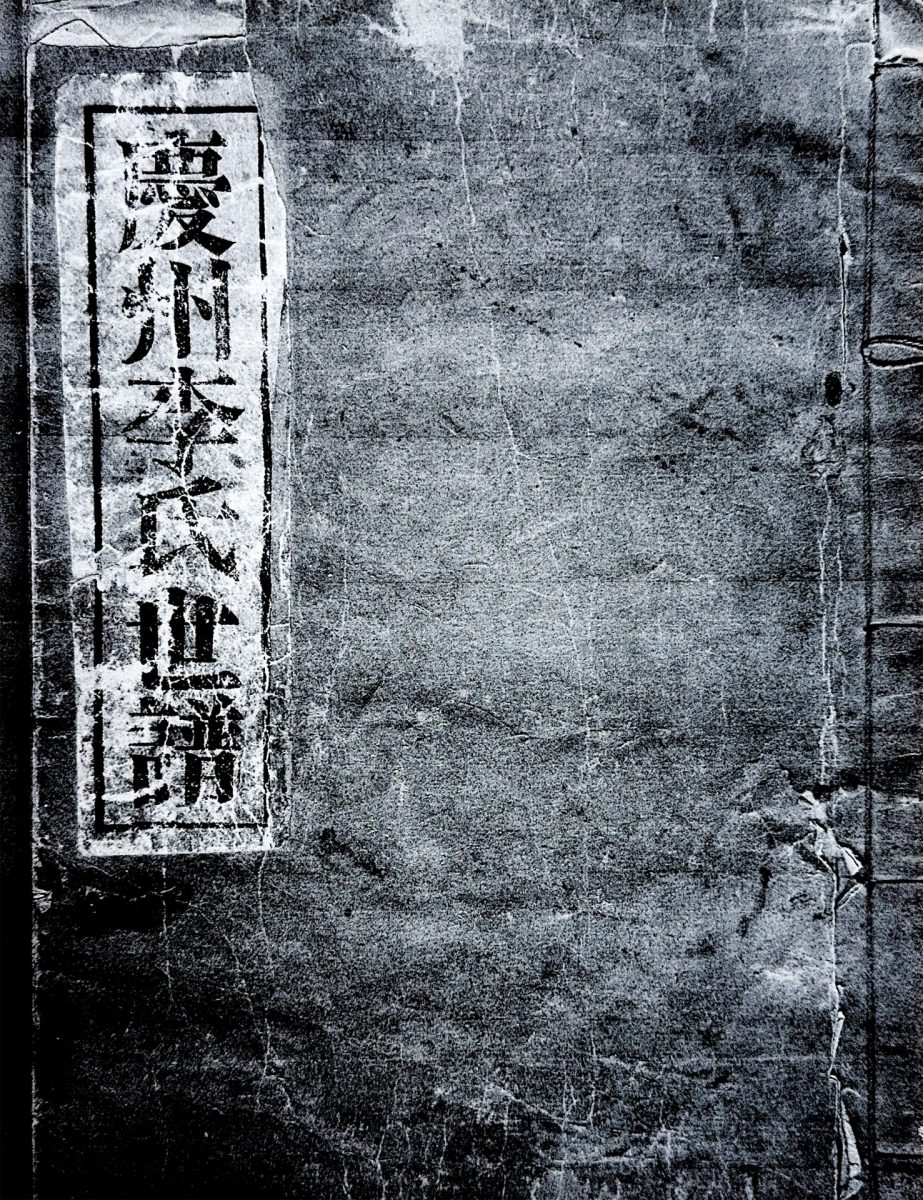 慶州李氏世譜